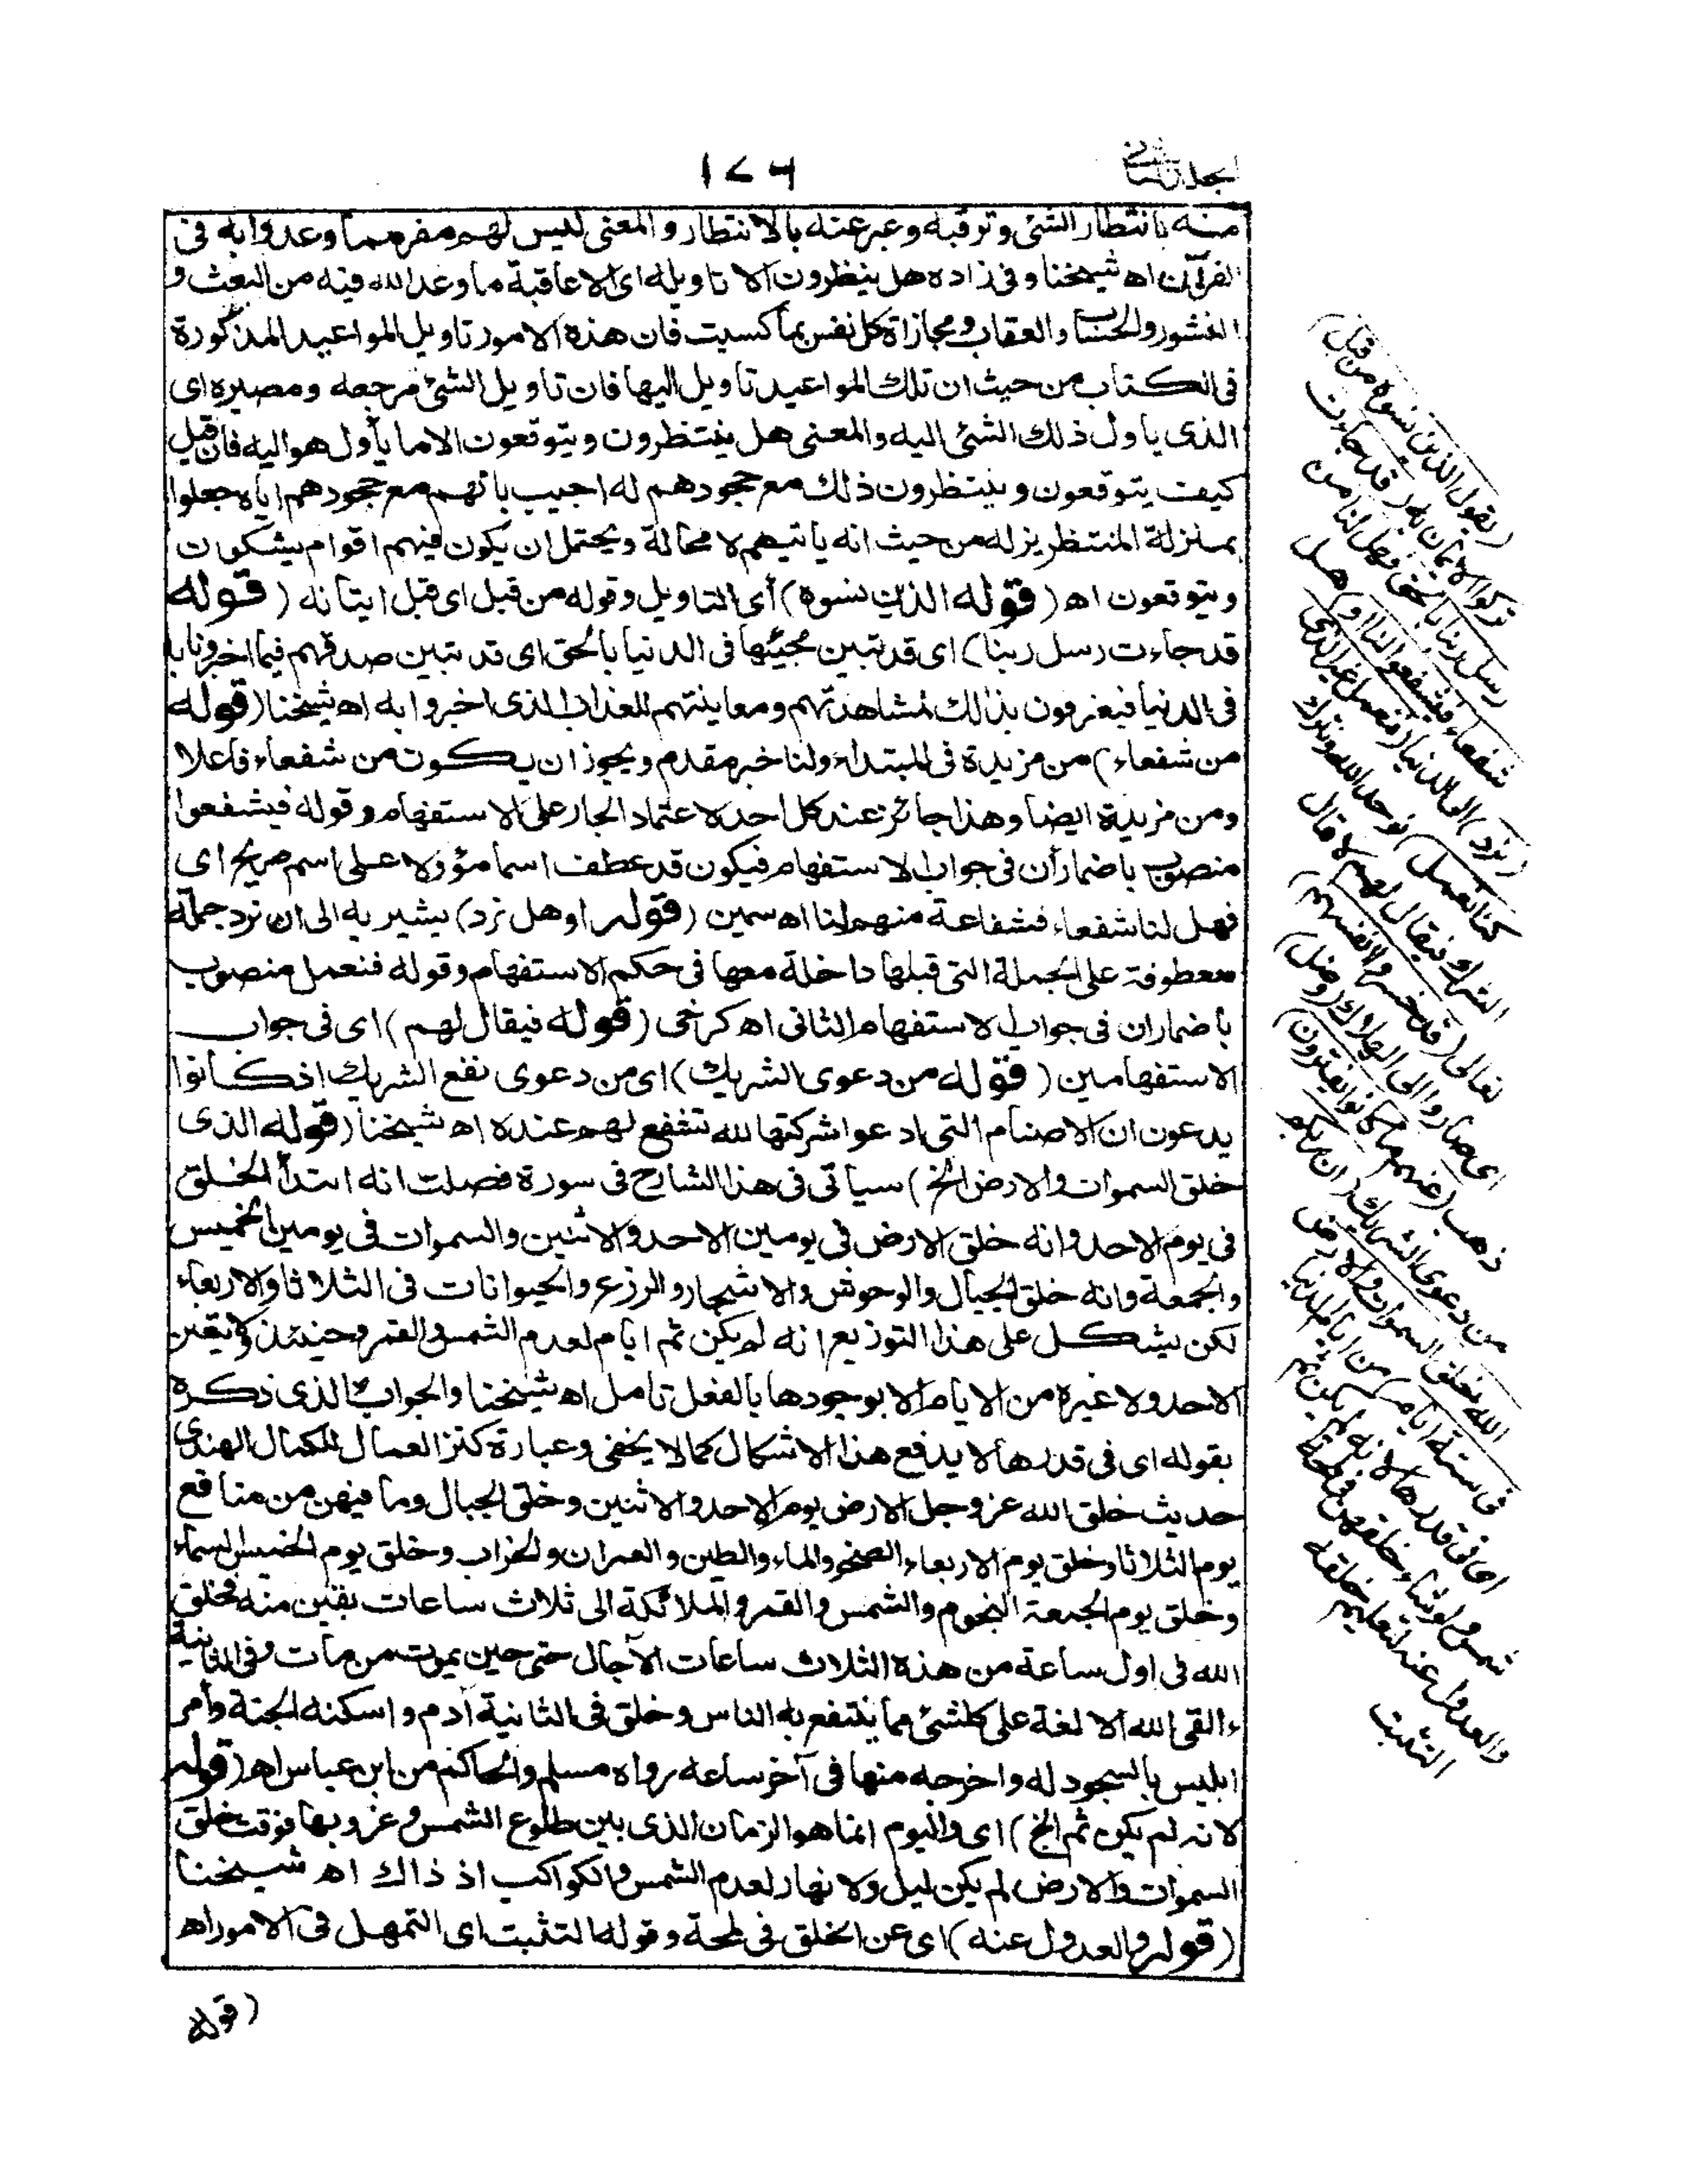 الجلد الثاني
١٧٦
منه بانتظار الشئ وترقبه وعبر عنه بالانتظار والمعنى ليس لهم مفر مما وعدوا به فى
القرآن اه شيخنا وفى زاده هل ينظرون الا تاويله اى الا عاقبة ما وعد الله فيه من البعث و
النشور والحساب والعقاب ومجازاة كل نفس بما كسبت فان هذه الامور تاويل المواعيد المذكورة
فى الكتاب من حيث ان تلك المواعيد تاويل اليها فان تاويل الشئ مرجعه ومصيره اى
الذى ياول ذلك الشئ اليه والمعنى هل ينتظرون ويتوقعون الا ما يأول هو اليه فان قيل
كيف يتوقعون وينتظرون ذلك مع جحودهم له اجيب بانهم مع جحودهم اياه جعلوا
بمنزلة المنتظرين له من حيث انه ياتيهم لا محالة ويحتمل ان يكون فيهم اقوام يشكون
ويتوقعون اه (قوله الذين نسوه) أى التاويل وقوله من قبل اى قبل ايتانه (قوله
قد جاءت رسل ربنا) اى قد تبين مجيئها فى الدنيا بالحق اى قد تبين صدقهم فيما اخبرونا به
فى الدنيا فيعترفون بذلك لمشاهدتهم ومعاينتهم للعذاب الذى اخبروا به اه شيخنا (قوله
من شفعاء) من مزيدة فى المبتداء ولنا خبر مقدم ويجوز ان يكون من شفعاء فاعلا
ومن مزيدة ايضا وهذا جائز عند كل احد لاعتماد الجار على الاستفهام وقوله فيشفعوا
منصوب باضمار أن فى جواب الاستفهام فيكون قد عطف اسما مؤولا على اسم صريح اى
فهل لنا شفعاء فشفاعة منهم لنا اه سمين (قوله اوهل نرد) يشير به الى ان نرد جملة
معطوفة على الجملة التى قبلها داخلة معها فى حكم الاستفهام وقوله فنعمل منصوب
باضمار ان فى جواب الاستفهام الثانى اه كرخى (قوله فيقال لهم) اى فى جواب
الاستفهامين (قوله من دعوى الشريك) اى من دعوى نفع الشريك اذ كانوا
يدعون ان الاصنام التى ادعوا شركتها لله تشفع لهم عنده اه شيخنا (قوله الذى
خلق السموات والارض الخ) سياتى فى هذا الشارح فى سورة فصلت انه ابتدأ الخلق
فى يوم الاحد وانه خلق الارض فى يومين الاحد والاثنين والسموات فى يومين الخميس
والجمعة وانه خلق الجبال والوحوش والاشجار والزرع والحيوانات فى الثلاثا والاربعاء
لكن يشكل على هذا التوزيع انه لم يكن ثم ايام لعدم الشمس والقمر وحينئذ لا يتعين
الاحد ولا غيره من الايام الا بوجودها بالفعل تامل اه شيخنا والجواب الذى ذكره
بقوله اى فى قدرها لا يدفع هذا الاشكال كما لا يخفى وعبارة كنز العمال للكمال الهندى
حديث خلق الله عز وجل الارض يوم الاحد والاثنين وخلق الجبال وما فيهن من منافع
يوم الثلاثا وخلق يوم الاربعاء الصخر والماء والطين والعمران والخراب وخلق يوم الخميس السماء
وخلق يوم الجمعة النجوم والشمس والقمر والملائكة الى ثلاث ساعات بقين منه فخلق
الله فى اول ساعة من هذه الثلاث ساعات الآجال حتى حين يموت من مات وفى الثانية
القى الله الالفة على كلشئ مما ينتفع به الناس وخلق فى الثانية آدم واسكنه الجنة وأمر
ابليس بالسجود له واخرجه منها فى آخر ساعه رواه مسلم والحاكم من ابن عباس اه (قوله
لانه لم يكن ثم الخ) اى واليوم انما هو الزمان الذى بين طلوع الشمس وغروبها فوقت خلق
السموات والارض لم يكن ليل ولا نهار لعدم الشمس والكواكب اذ ذاك اه شيخنا
(قوله والعدول عنه) اى عن الخلق فى لمحة وقوله التثبت اى التمهل فى الامور اه
(قوله
(يقول الذين نسوه من قبل)
تركوا الايمان به (قد جاءت
رسل ربنا بالحق فهل لنا من
شفعاء فيشفعوا لنا او) هل
(نرد) الى الدنيا (فنعمل غير الذى
كنا نعمل) نوحد الله ونترك
الشرك فيقال لهم لا قال
تعالى (قد خسروا انفسهم)
اى صاروا الى الهلاك (وضل)
ذهب (عنهم ما كانوا يفترون)
من دعوى الشريك (ان ربكم
الله خلق السموات والارض
فى ستة ايام) من ايام الدنيا
اى فى قدرها لانه لم يكن ثم
شمس ولو شاء خلقهن فى لمحة
والعدول عنه لتعليم خلقه
التثبت